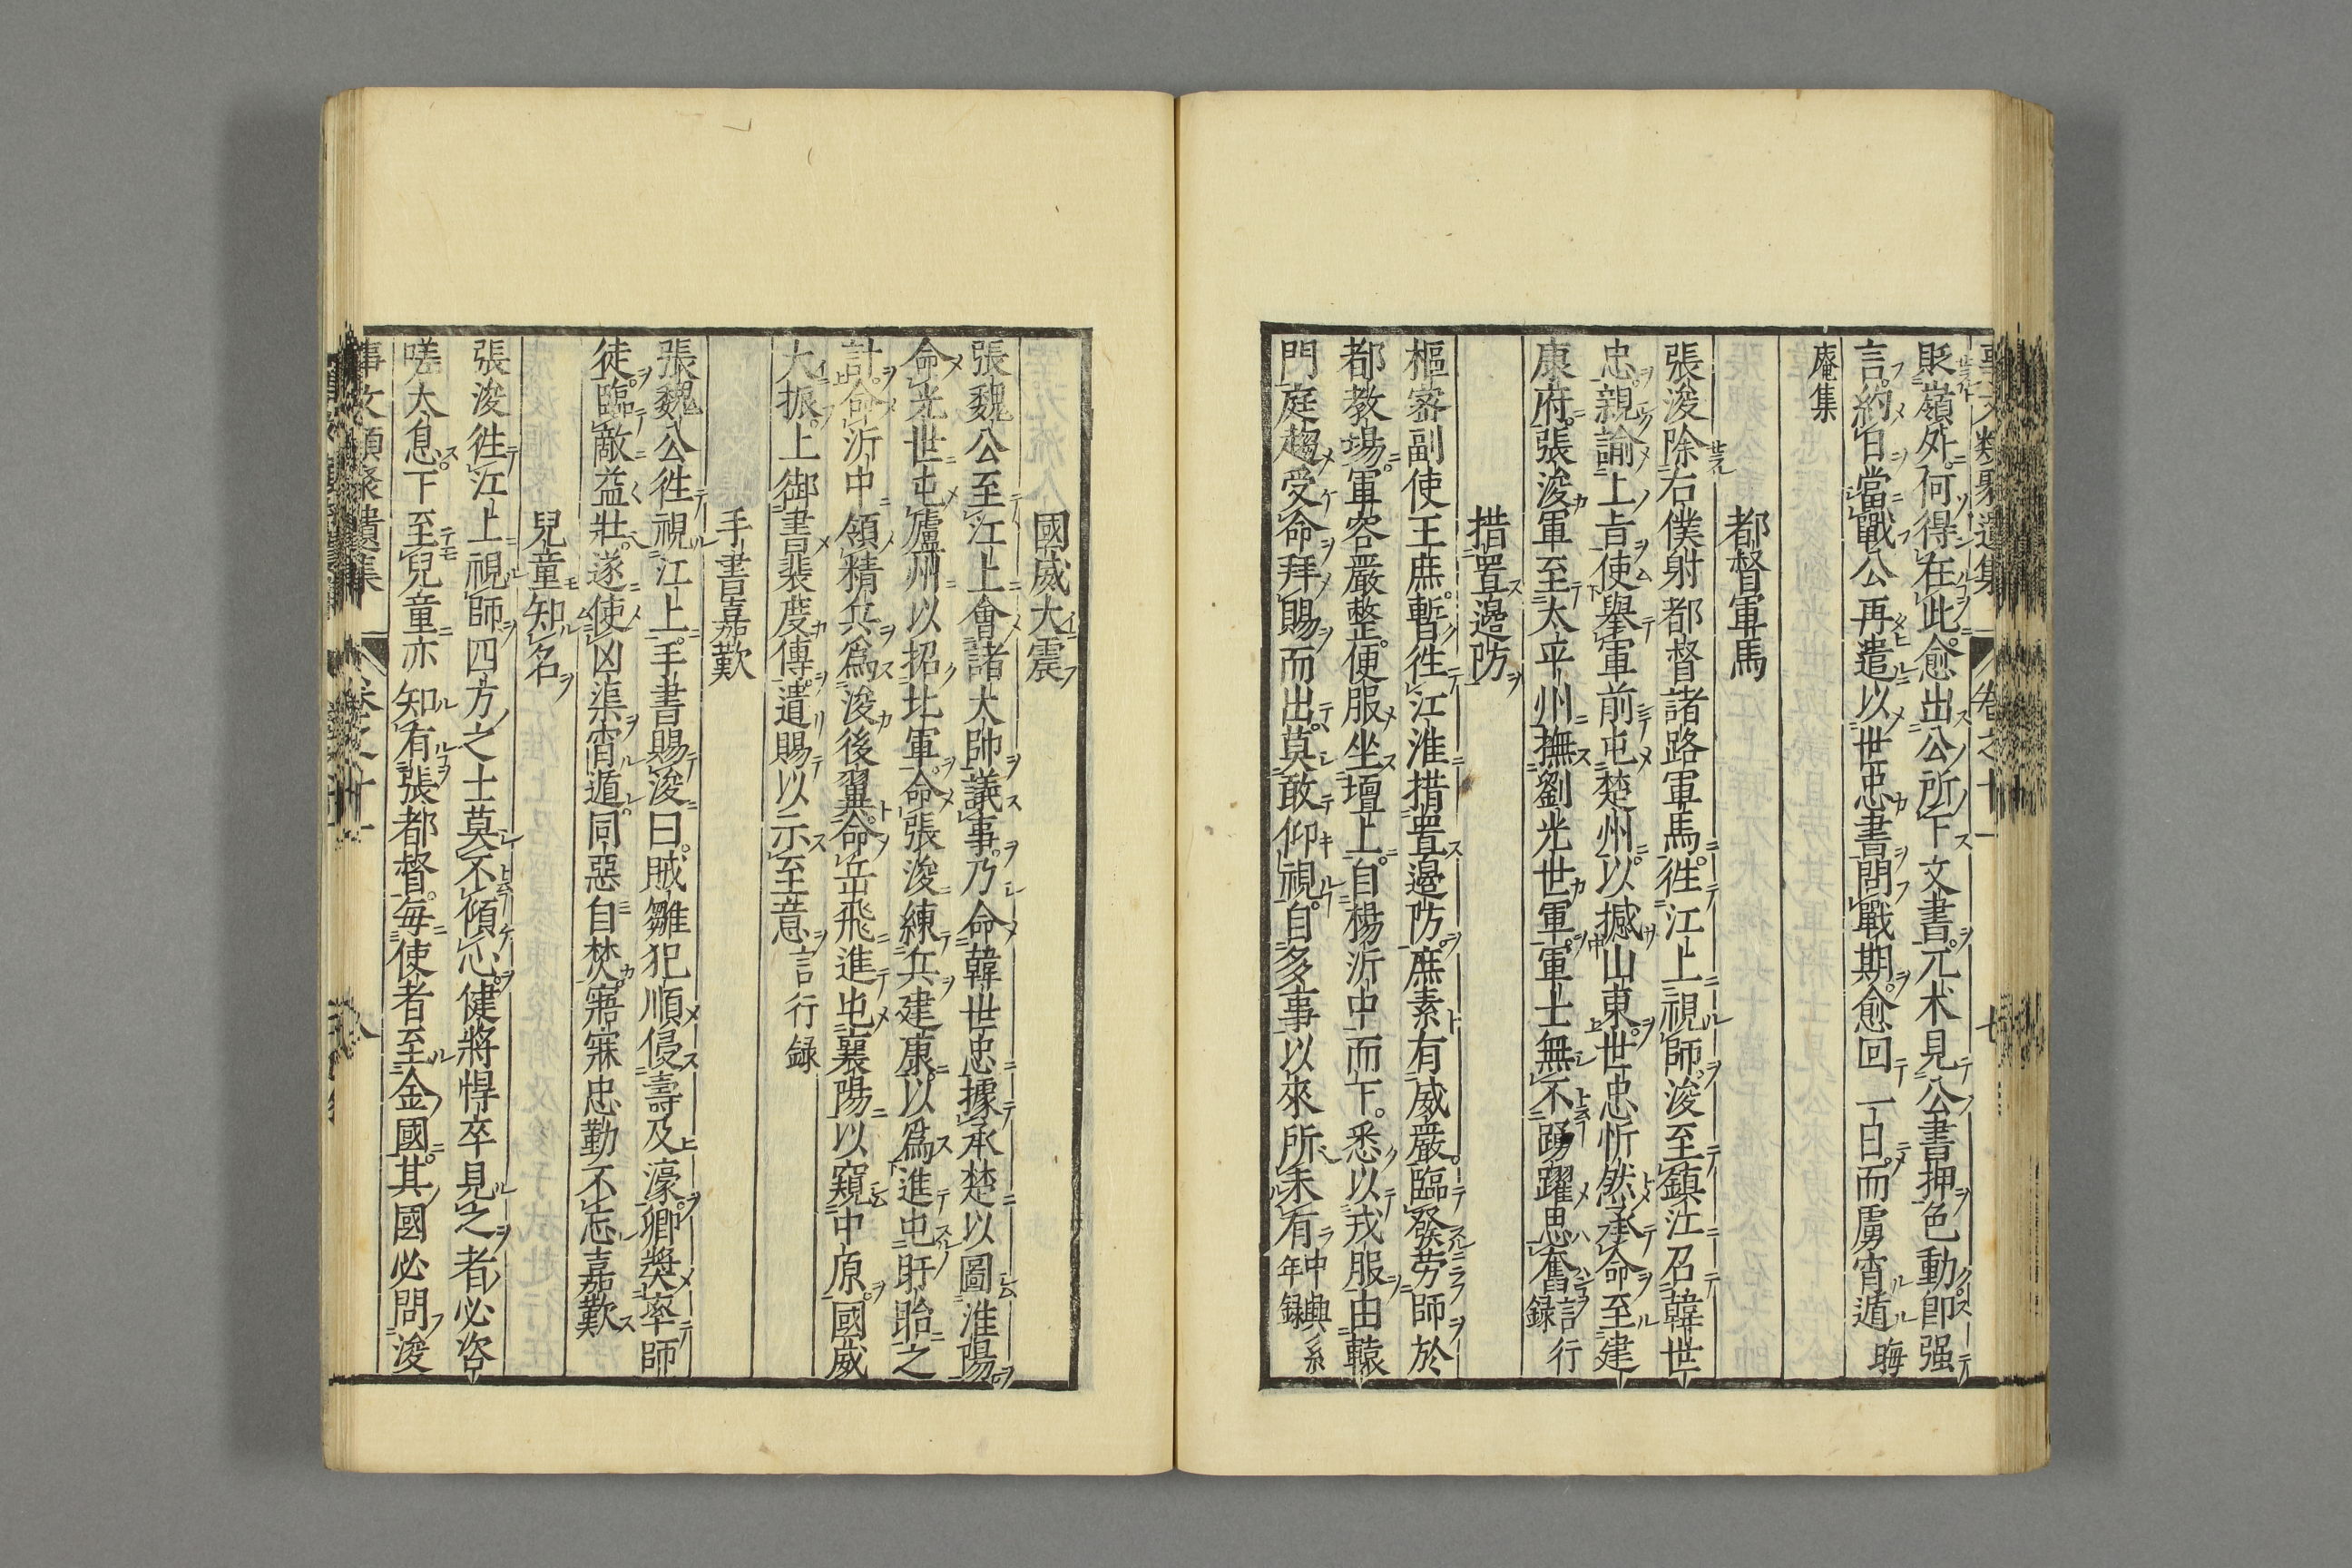 事文類聚遺集 卷之十一 七
貶嶺外何得在此愈出公所下文書兀术見公書押色動卽强
言約日當戰公再遣以世忠書問戰期愈回一日而虜宵遁晦
庵集
都督軍馬
張浚除右僕射都督諸路軍馬徃江上視師浚至鎮江召韓世
忠親諭上旨使舉軍前屯楚州以撼山東世忠忻然承命至建
康府張浚軍至太平州撫劉光世軍軍士無不踴躍思奮言行
錄
措置邊防
樞密副使王庶暫徃江淮措置邊防庶素有威嚴臨發勞師於
都教場軍容嚴整便服坐壇上自楊沂中而下悉以戎服由轅
門庭趨受命拜賜而出莫敢仰視自多事以來所未有中興系
年錄
國威大震
張魏公至江上會諸大帥議事乃命韓世忠據承楚以圖淮陽
命光世屯廬州以招北軍命張浚練兵建康以爲進屯盱眙之
計命沂中領精兵爲浚後翼命岳飛進屯襄陽以窺中原國威
大振上御書裴度傳遣賜以示至意言行録
手書嘉歎
張魏公徃視江上手書賜浚曰賊雛犯順侵壽及濠卿奬率師
徒臨敵益壯遂使凶渠宵遁同惡自焚寤寐忠勤不忘嘉歎
兒童知名
張浚徃江上視師四方之士莫不傾心健將悍卒見之者必咨
嗟太息下至兒童亦知有張都督每使者至金國其國必問浚
事文類聚遺集 卷之十一 八